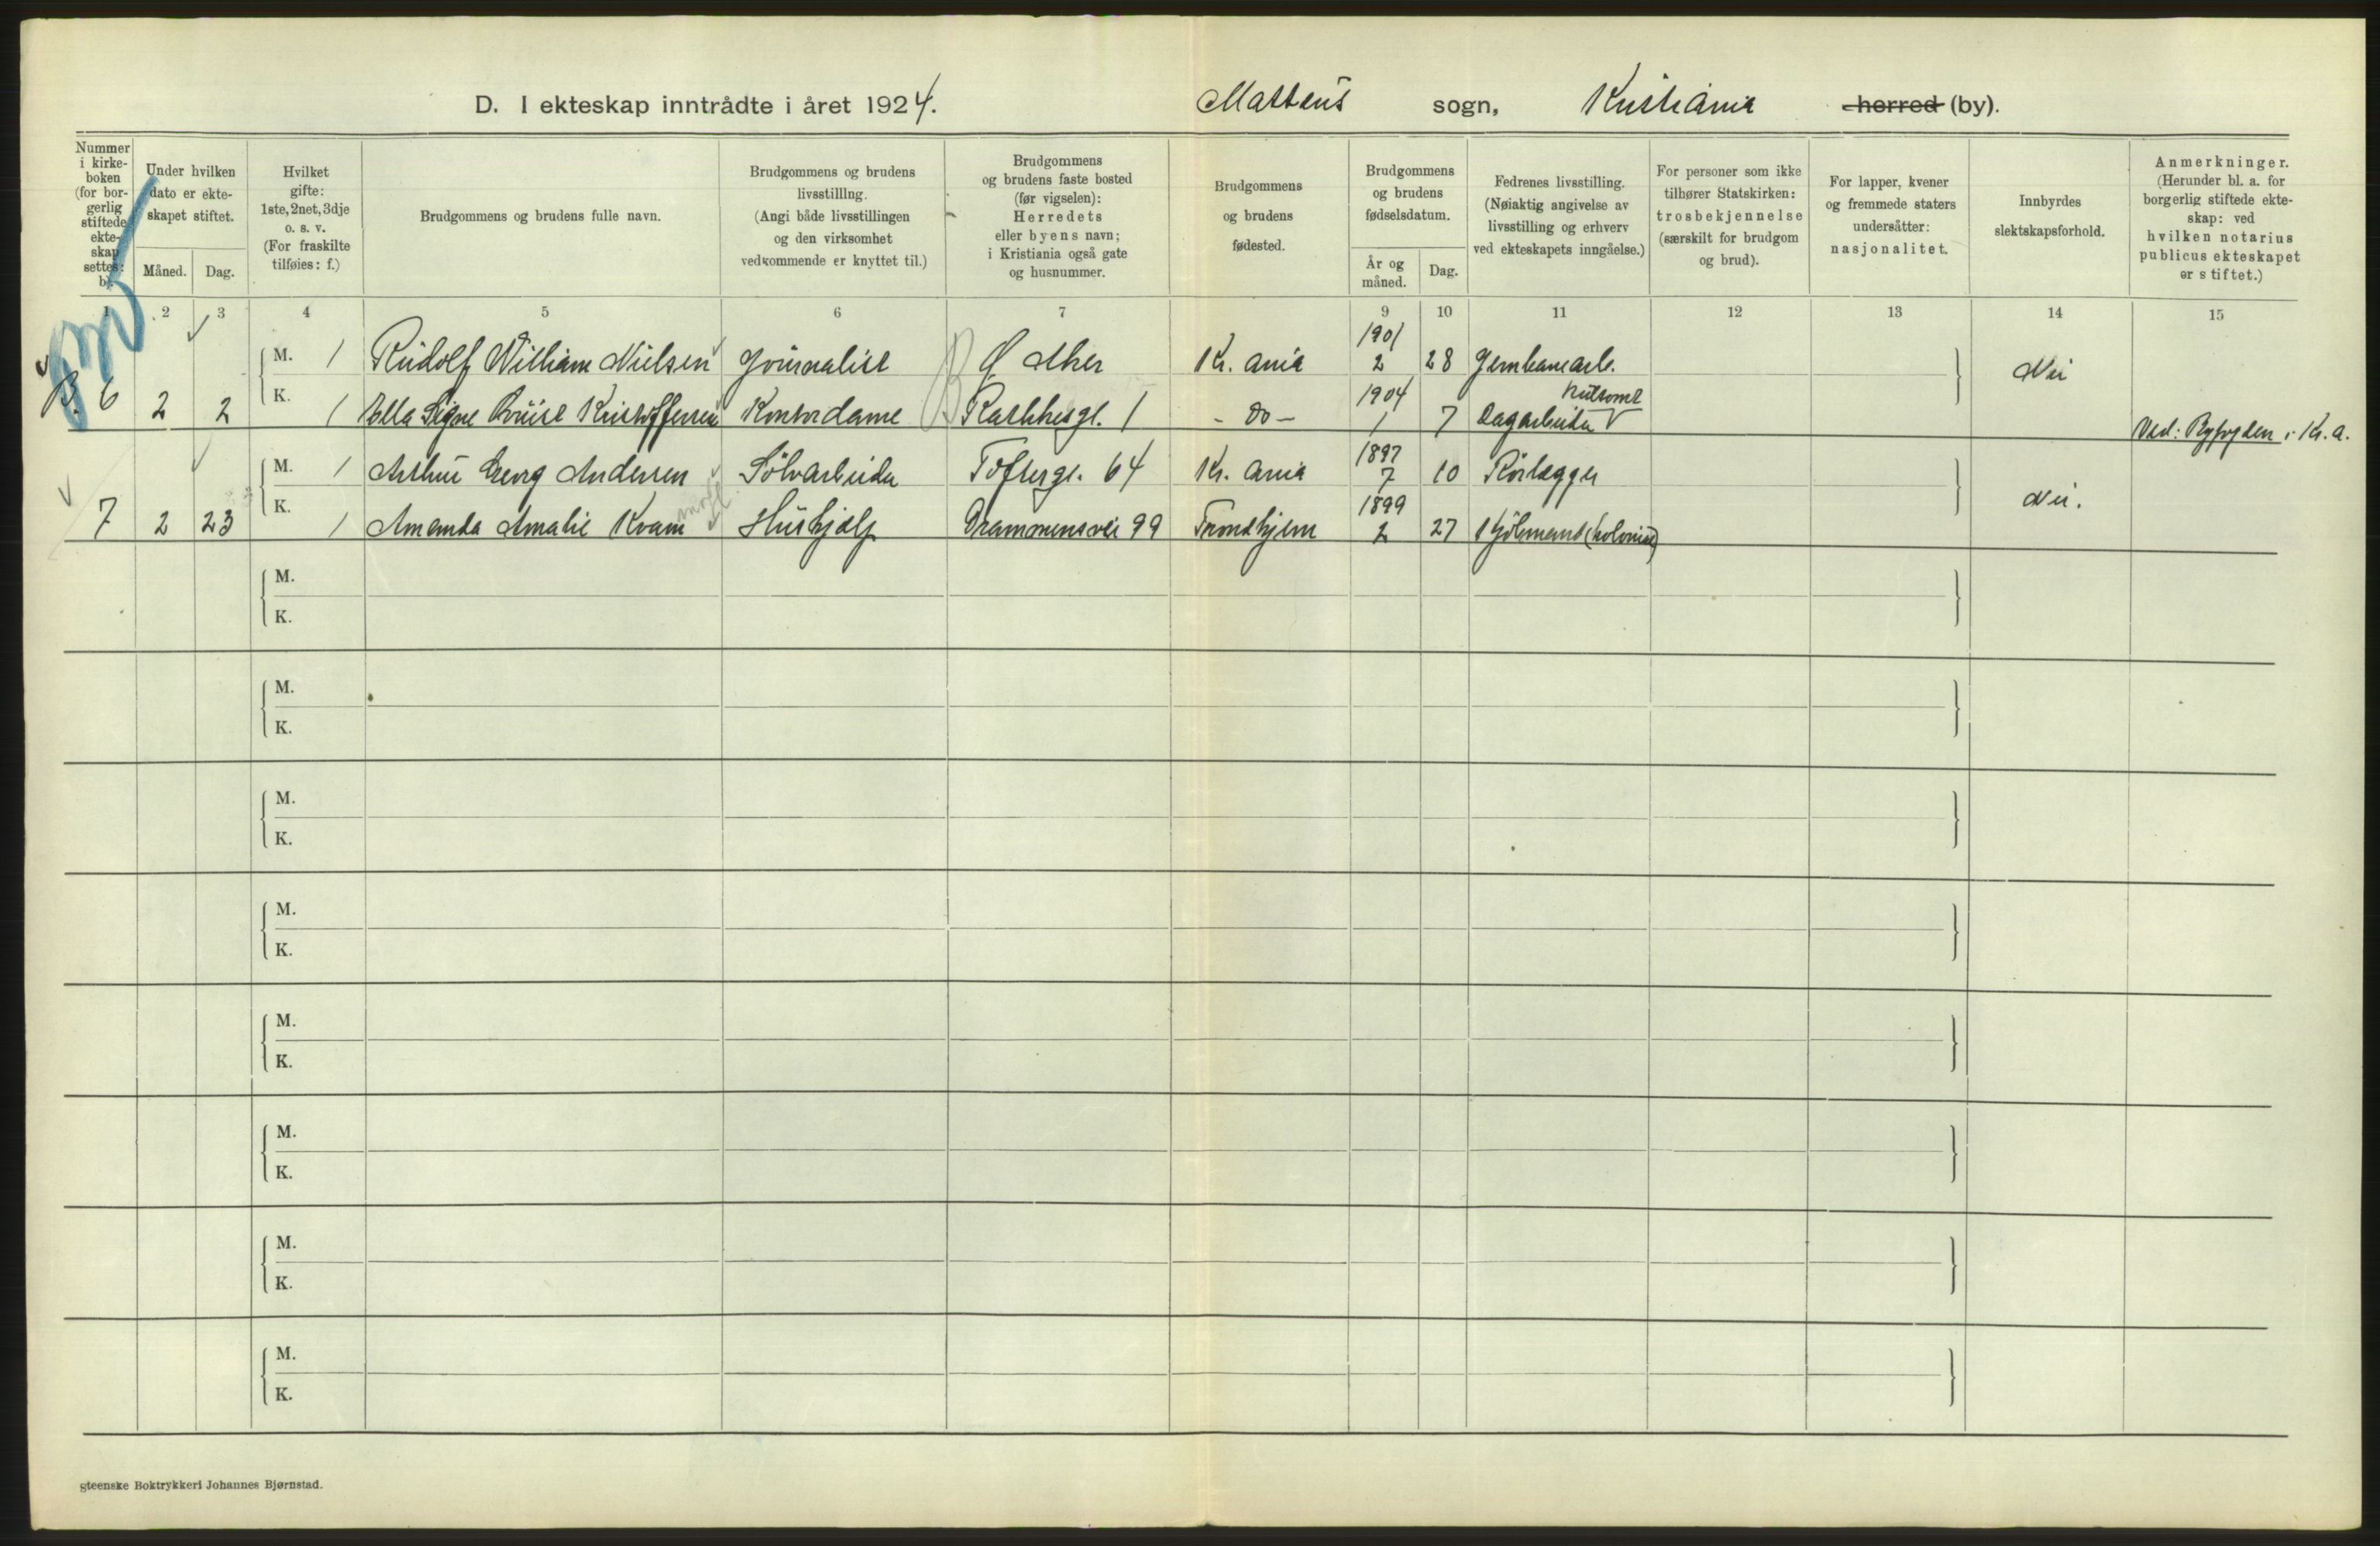 D. I ekteskap inntrådte i året 1924. Matteus sogn, Kristiania herred (by).
Nummer
i kirke-
boken
(for bor-
gerlig
stiftede
ekte-
skap
settes:
b).
Under hvilken
dato er ekte-
skapet stiftet.
Måned. Dag.
Hvilket
gifte:
1ste, 2net, 3dje
o. s. v.
(For fraskilte
tilføies: f.)
Brudgommens og brudens fulle navn.
Brudgommens og brudens
livsstilling.
(Angi både livsstillingen
og den virksomhet
vedkommende er knyttet til.)
Brudgommens
og brudens faste bosted
(før vigselen):
Herredets
eller byens navn;
i Kristiania også gate
og husnummer.
Brudgommens
og brudens
fødested.
Brudgommens
og brudens
fødselsdatum.
År og
måned.
Dag.
Fedrenes livsstilling.
(Nøiaktig angivelse av
livsstilling og erhverv
ved ekteskapets inngåelse.)
For personer som ikke
tilhører Statskirken:
trosbekjennelse
(særskilt for brudgom
og brud).
For lapper, kvener
og fremmede staters
undersåtter:
nasjonalitet.
Innbyrdes
slektskapsforhold.
Anmerkninger.
(Herunder bl. a. for
borgerlig stiftede ekte-
skap: ved
hvilken notarius
publicus ekteskapet
er stiftet.)
1 2 3 4 5 6 7 9 10 11 12 13 14 15
M. 1 Rudolf William Nielsen Journalist Ø Aker Kr. ania 1901 2 28 Jernbanearb. Nei
B. 6 2 2 K. 1 Ella Signe Louise Kristoffersen Kontordame 1 - do - 1904 1 7 Dagarbeider Ved: Byfogden i Kr. a.
M. 1 Arthur Georg Andersen Sölvarbeider Toftesgt. 64 Kr. ania 1897 7 10 Rörlægger
7 2 23 K. 1 Amanda Amalie Kvam Hushjælp Drammensvei 99 Trondhjem 1899 2 27 Kjöbmand (kolonial) Nei.
M.
K.
M.
K.
M.
K.
M.
K.
M.
K.
M.
K.
M.
K.
M.
K.
steenske Boktrykkeri Johannes Bjørnstad.